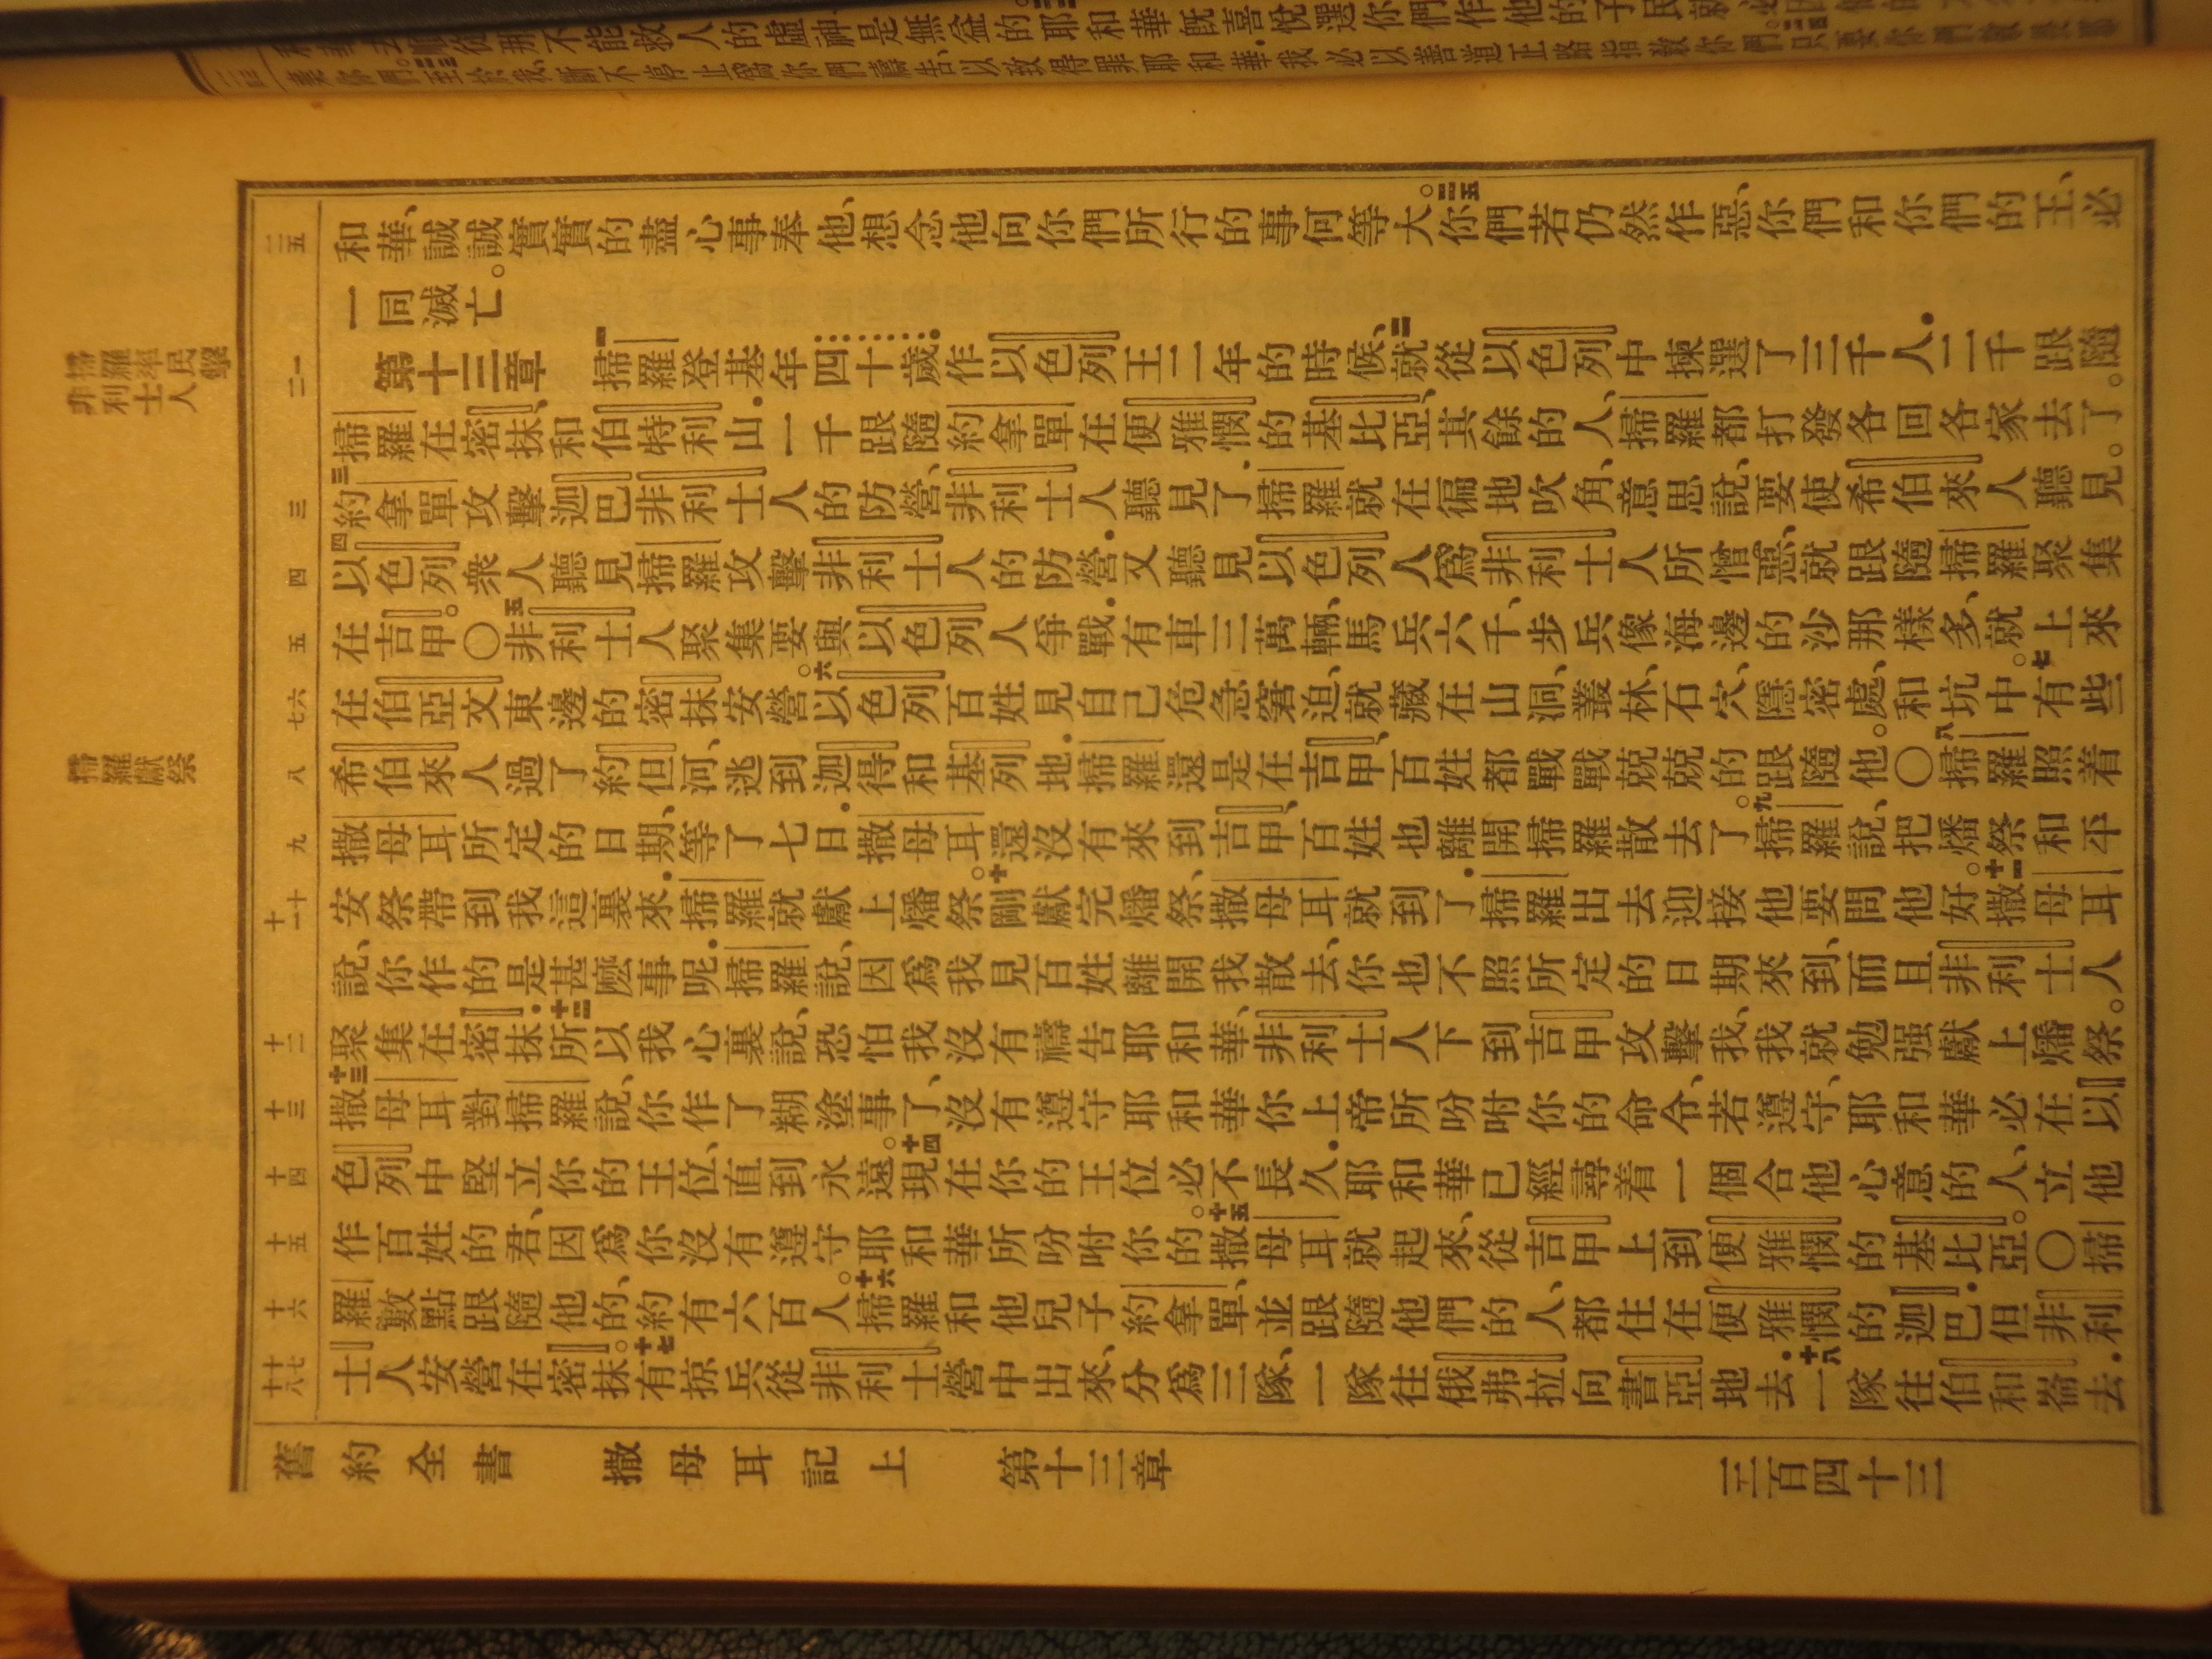 從那不能救人的虛神是無益的。耶和華旣喜悅選你們作他的子民就必
棄你們。二三至於我、斷不停止爲你們禱告、以致得罪耶和華.我必以善道正路指敎你們。二四只要你們
二五
和華、誠誠實實的盡心事奉他、想念他向你們所行的事何等大。二五你們若仍然作惡、你們和你們的王、必
一同滅亡。
掃羅率民擊非利士人
一二
第十三章 一掃羅登基年四十歲.作以色列王二年的時候、二就從以色列中揀選了三千人.二千跟隨
掃羅在密抹、和伯特利山.一千跟隨約拿單在便雅憫的基比亞、其餘的人、掃羅都打發各回各家去了。
三
三約拿單攻擊迦巴非利士人的防營、非利士人聽見了.掃羅就在徧地吹角、意思說、要使希伯來人聽見。
四
四以色列衆人聽見掃羅攻擊非利士人的防營.又聽見以色列人爲非利士人所憎惡、就跟隨掃羅聚集
五
在吉甲。〇五非利士人聚集要與以色列人爭戰.有車三萬輛、馬兵六千、步兵像海邊的沙那樣多、就上來
六七
在伯亞文東邊的密抹安營。六以色列百姓見自己危急窘迫、就藏在山洞、叢林、石穴、隱密處、和坑中。七有些
掃羅獻祭
八
希伯來人過了約但河、逃到迦得和基列地.掃羅還是在吉甲、百姓都戰戰兢兢的跟隨他。〇八掃羅照着
九
撒母耳所定的日期、等了七日.撒母耳還沒有來到吉甲、百姓也離開掃羅散去了。九掃羅說、把燔祭和平
十十一
安祭帶到我這裏來.掃羅就獻上燔祭。十剛獻完燔祭、撒母耳就到了.掃羅出去迎接他要問他好。十一撒母耳
說、你作的是甚麽事呢.掃羅說、因爲我見百姓離開我散去、你也不照所定的日期來到、而且非利士人
十二
聚集在密抹.十二所以我心裏說、恐怕我沒有禱告耶和華、非利士人下到吉甲攻擊我、我就勉强獻上燔祭。
十三
十三撒母耳對掃羅說、你作了糊塗事了、沒有遵守耶和華你上帝所吩咐你的命令、若遵守、耶和華必在以
十四
色列中堅立你的王位、直到永遠。十四現在你的王位必不長久.耶和華已經尋着一個合他心意的人、立他
十五
作百姓的君、因爲你沒有遵守耶和華所吩咐你的。十五撒母耳就起來、從吉甲上到便雅憫的基比亞。〇掃
十六
羅數點跟隨他的、約有六百人。十六掃羅和他兒子約拿單、並跟隨他們的人、都住在便雅憫的迦巴.但非利
十七十八
士人安營在密抹。十七有掠兵從非利士營中出來、分爲三隊、一隊往俄弗拉向書亞地去.十八一隊往伯和崙去.
舊約全書 撒母耳記上 第十三章 三百四十三